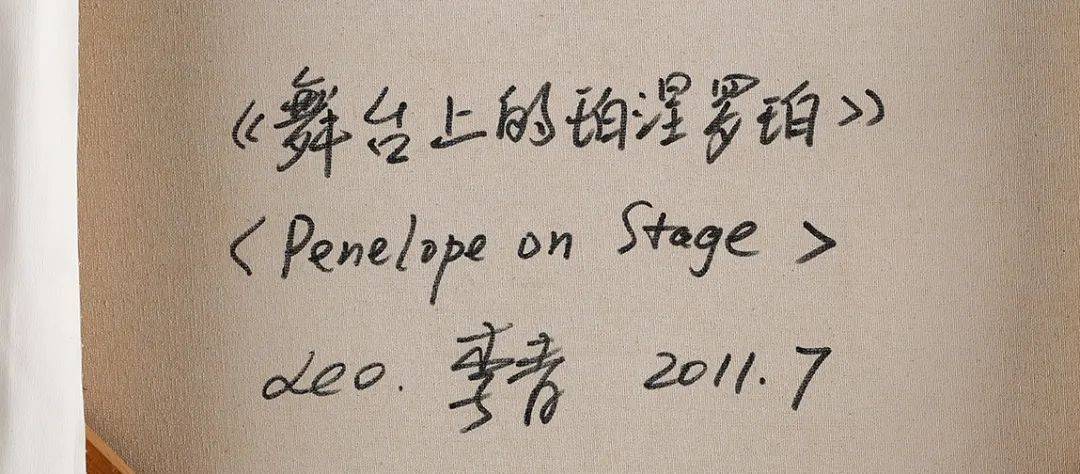 《舞台上的珀涅罗珀》
<Penelope on Stage>
Leo. 李青 2011.7